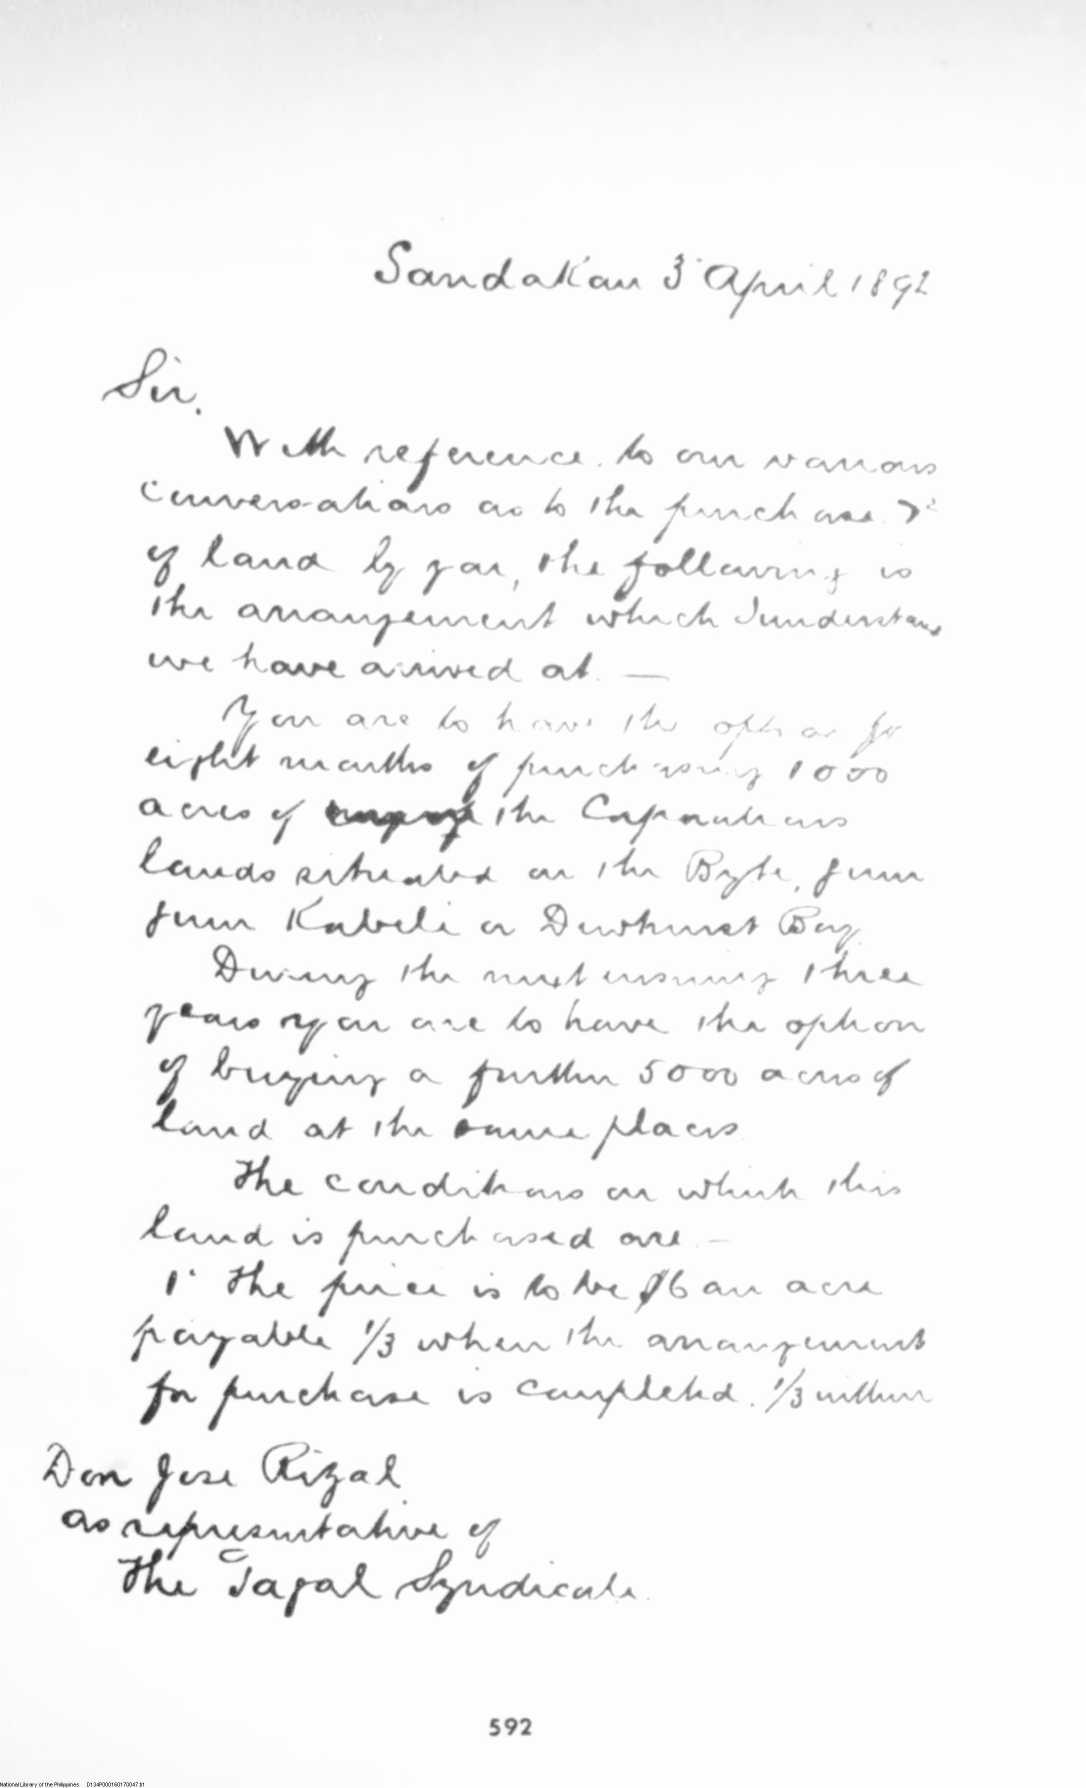 Sandakan 3 April 1892
Sir.
With reference to our various
conversations as to the purchase
of land by you, the following is
the arrangement which I understand
we have arrived at. —
You are to have the option for
eight months of purchasing 1000
acres of the Corporations
lands situated on the Byte, from
from Kabeli or Dewhurst Bay
During the next ensuing three
years you are to have the option
of buying a further 5000 acres of
land at the same places
The conditions on which this
land is purchased are —
1. The price is to be $6 an acre
payable 1/3 when the arrangement
for purchase is completed. 1/3 within
Don Jose Rizal
as representative of
The Tagal Syndicate.
592
National Library of the Philippines D134P000160170047.tif